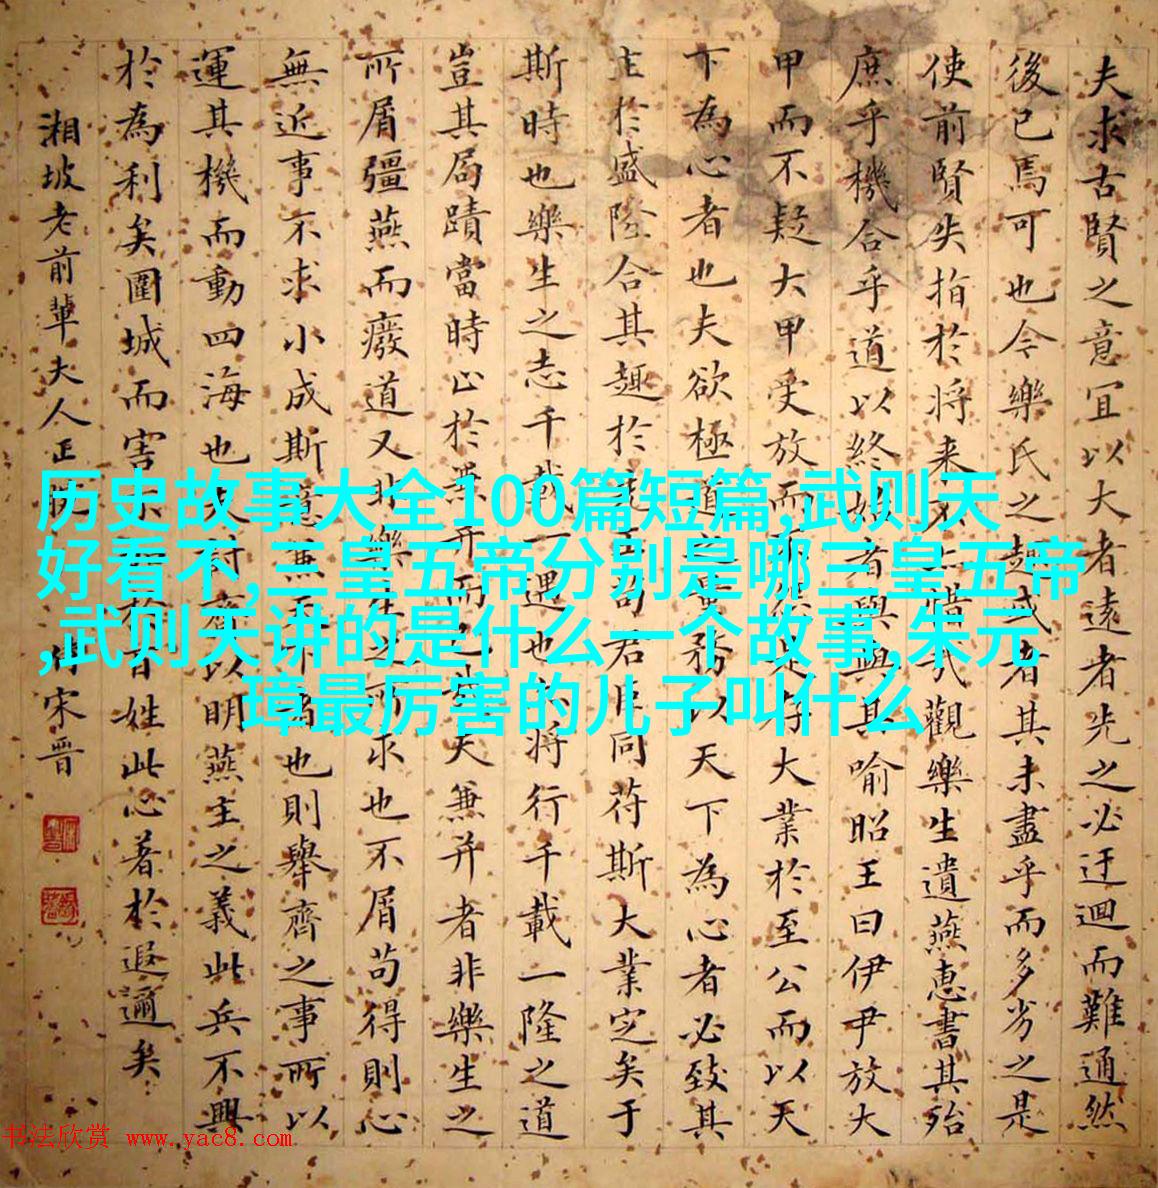 夫求古賢之意宜以大者遠者先之必迂迴而難通然
後已焉可也今樂氏之趣或者其未盡乎而多劣之是
使前賢失指於將来不亦惜哉觀樂生遺燕惠書其殆
庶乎機合乎道以終始者與與其喻昭王曰伊尹放大
甲而不疑大甲受放而不怨是存大業於至公而以天
下為心者也夫欲極道之量務以天下為心者必致其
主於盛隆合其趣於先王苟君臣同符斯大業定矣于
斯時也樂生之志千載一遇也亦將行千載一隆之道
豈其局蹟當時止於兼并而已哉夫兼并者非樂生之
所屑彊燕而廢道又非樂生之所求也不屑苟得則心
無近事不求小成斯意兼天下者也則舉齊之事所以
運其機而動四海也夫討齊以明燕主之義此兵不興
於為利矣圍城而害不加於百姓此心著於遐邇矣
湘坡老前輩夫人正 宋晋
历史故事大全100篇短篇,武则天
好看不,三皇五帝分别是哪三皇五帝
,武则天讲的是什么一个故事,朱元
璋最厉害的儿子叫什么
书法欣赏 www.yac8.com